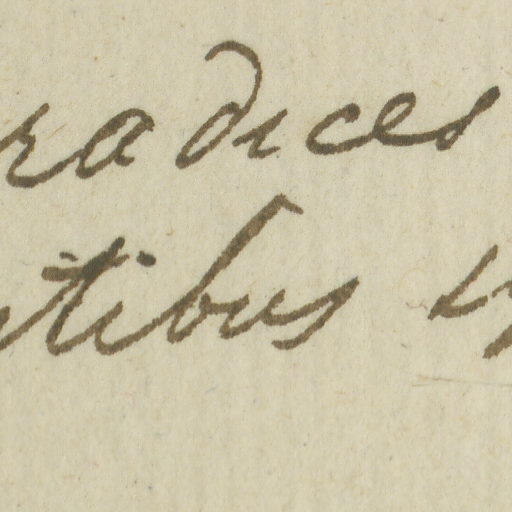 radices
tibus